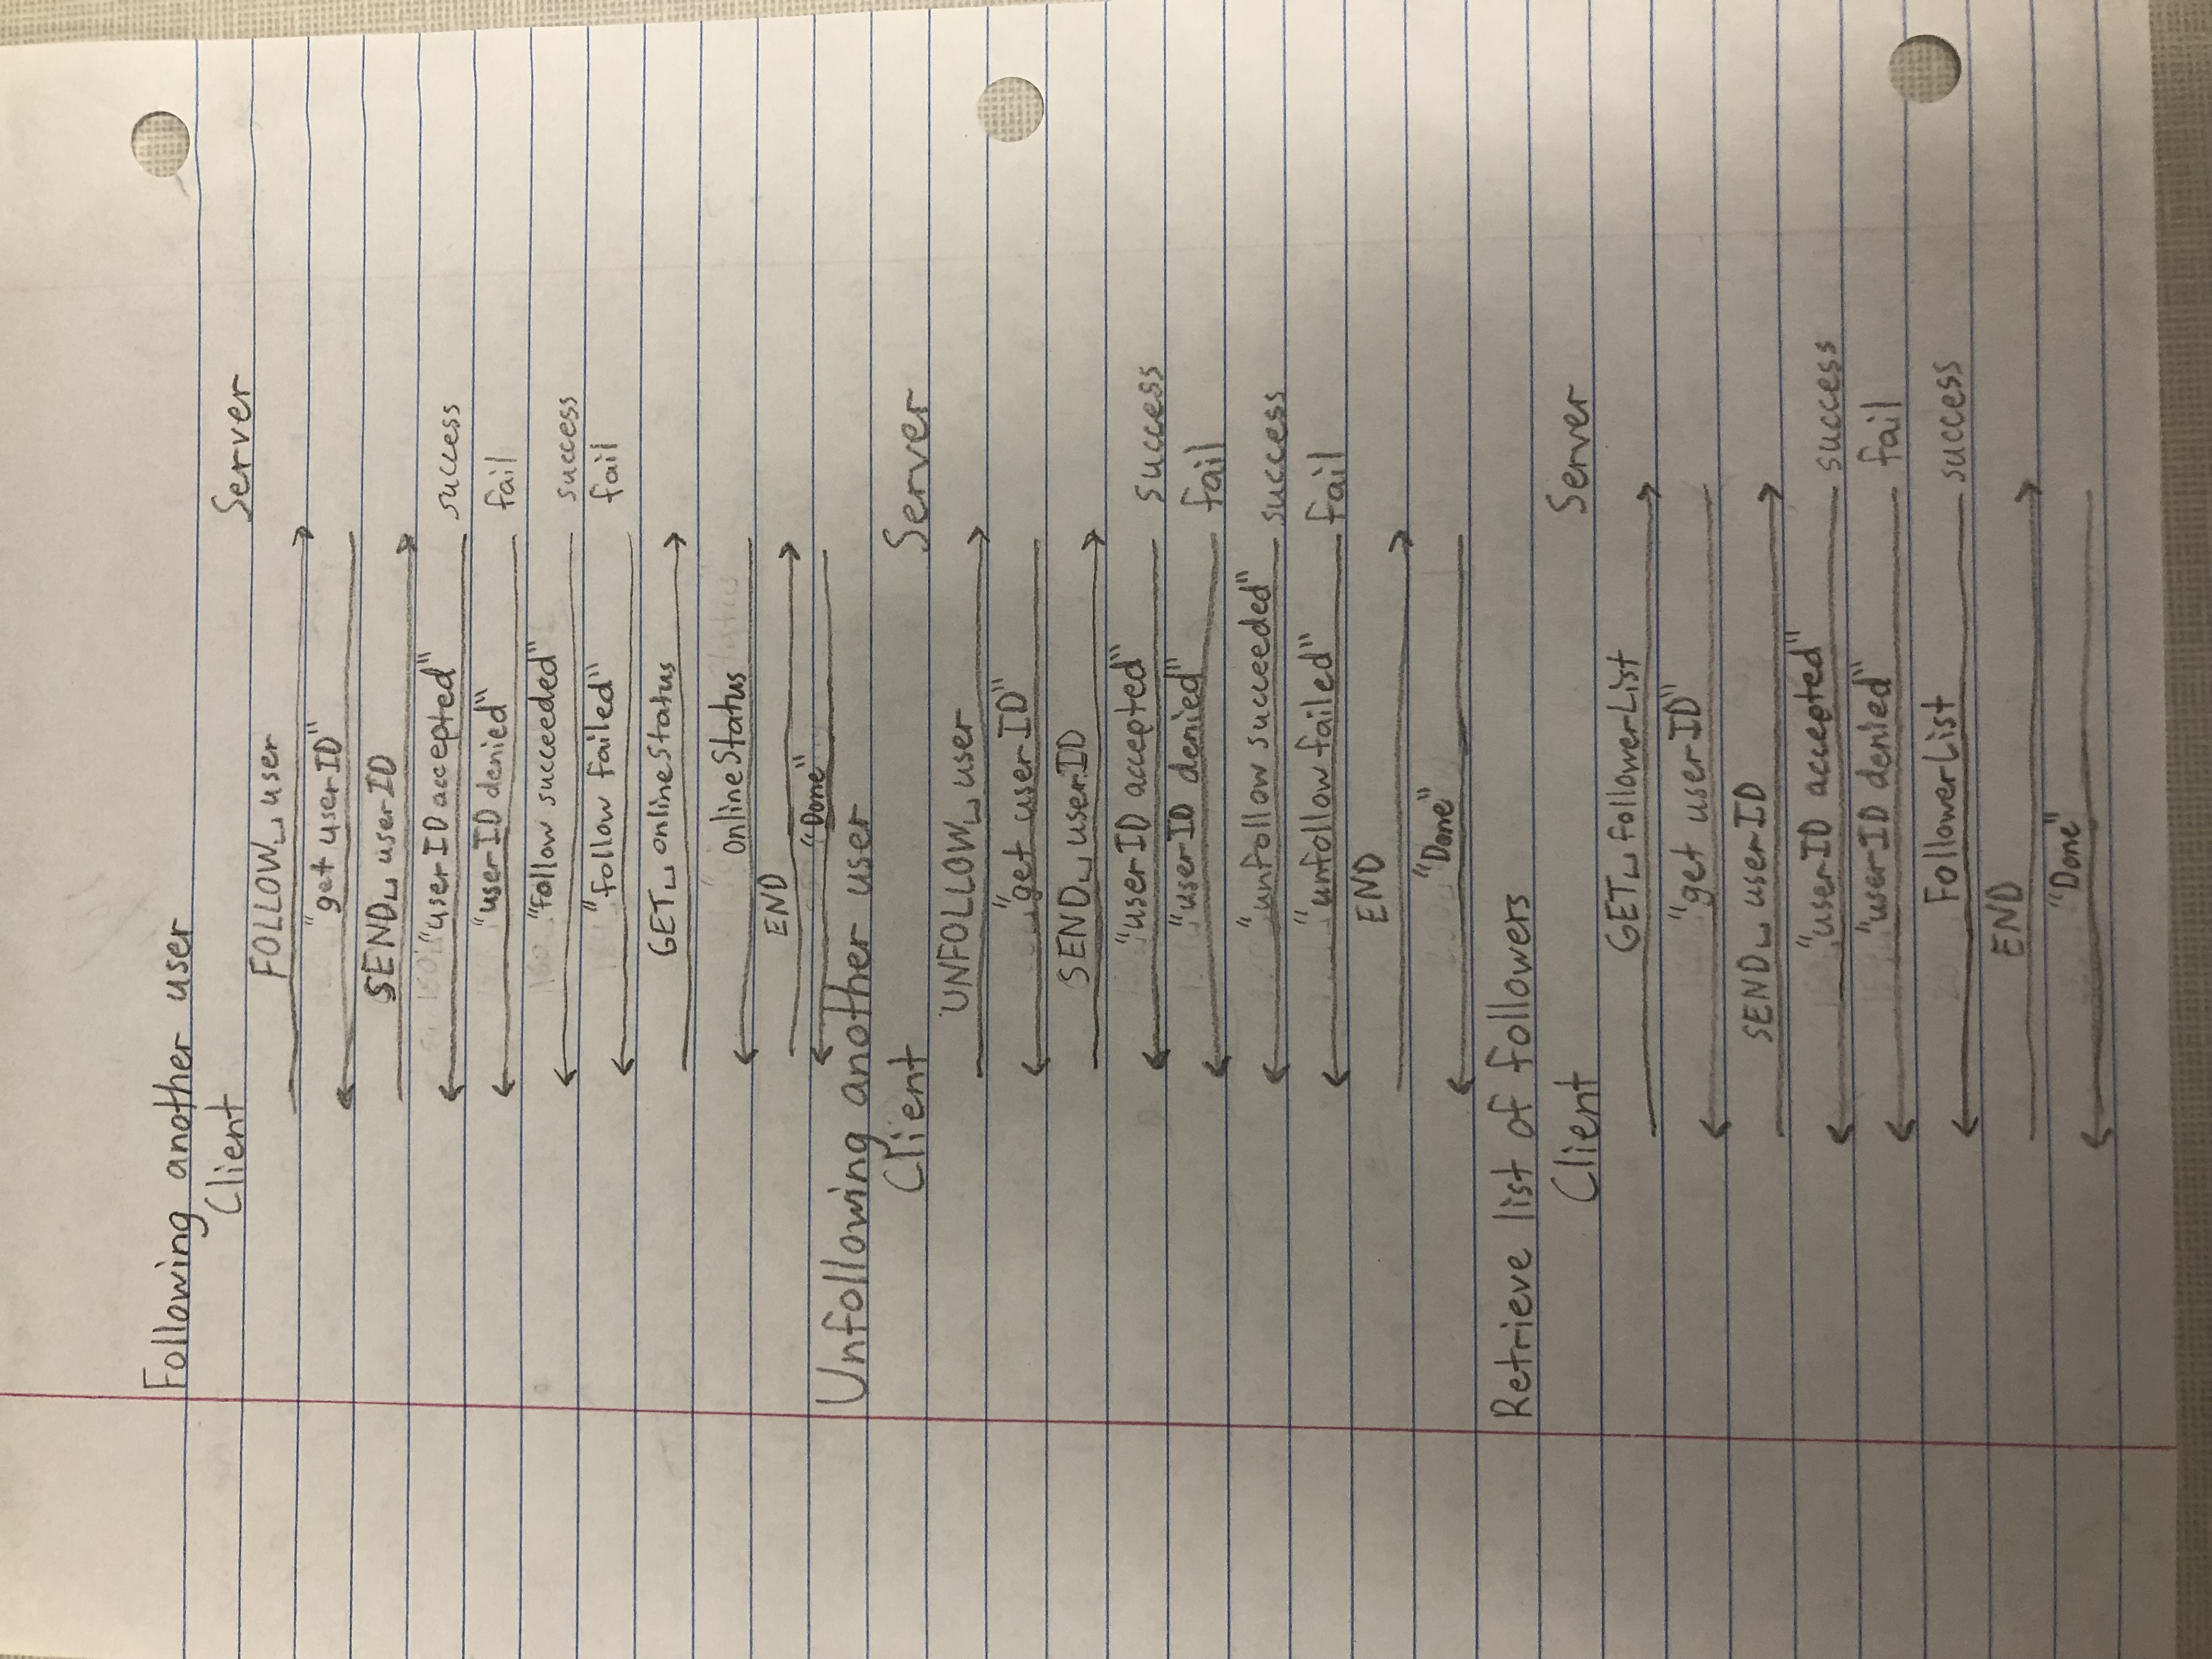 Following another user
Client Server
FOLLOW␣user
"get userID"
SEND␣userID
"userID accepted" success
"userID denied" fail
"follow succeeded" success
"follow failed" fail
GET␣onlineStatus
onlineStatus
END
"Done"
Unfollowing another user
Client Server
UNFOLLOW␣user
"get userID"
SEND␣userID
"userID accepted" success
"userID denied" fail
"unfollow succeeded" success
"unfollow failed" fail
END
"Done"
Retrieve list of followers
Client Server
GET␣followerList
"get userID"
SEND␣userID
"userID accepted" success
"userID denied" fail
FollowerList success
END
"Done"